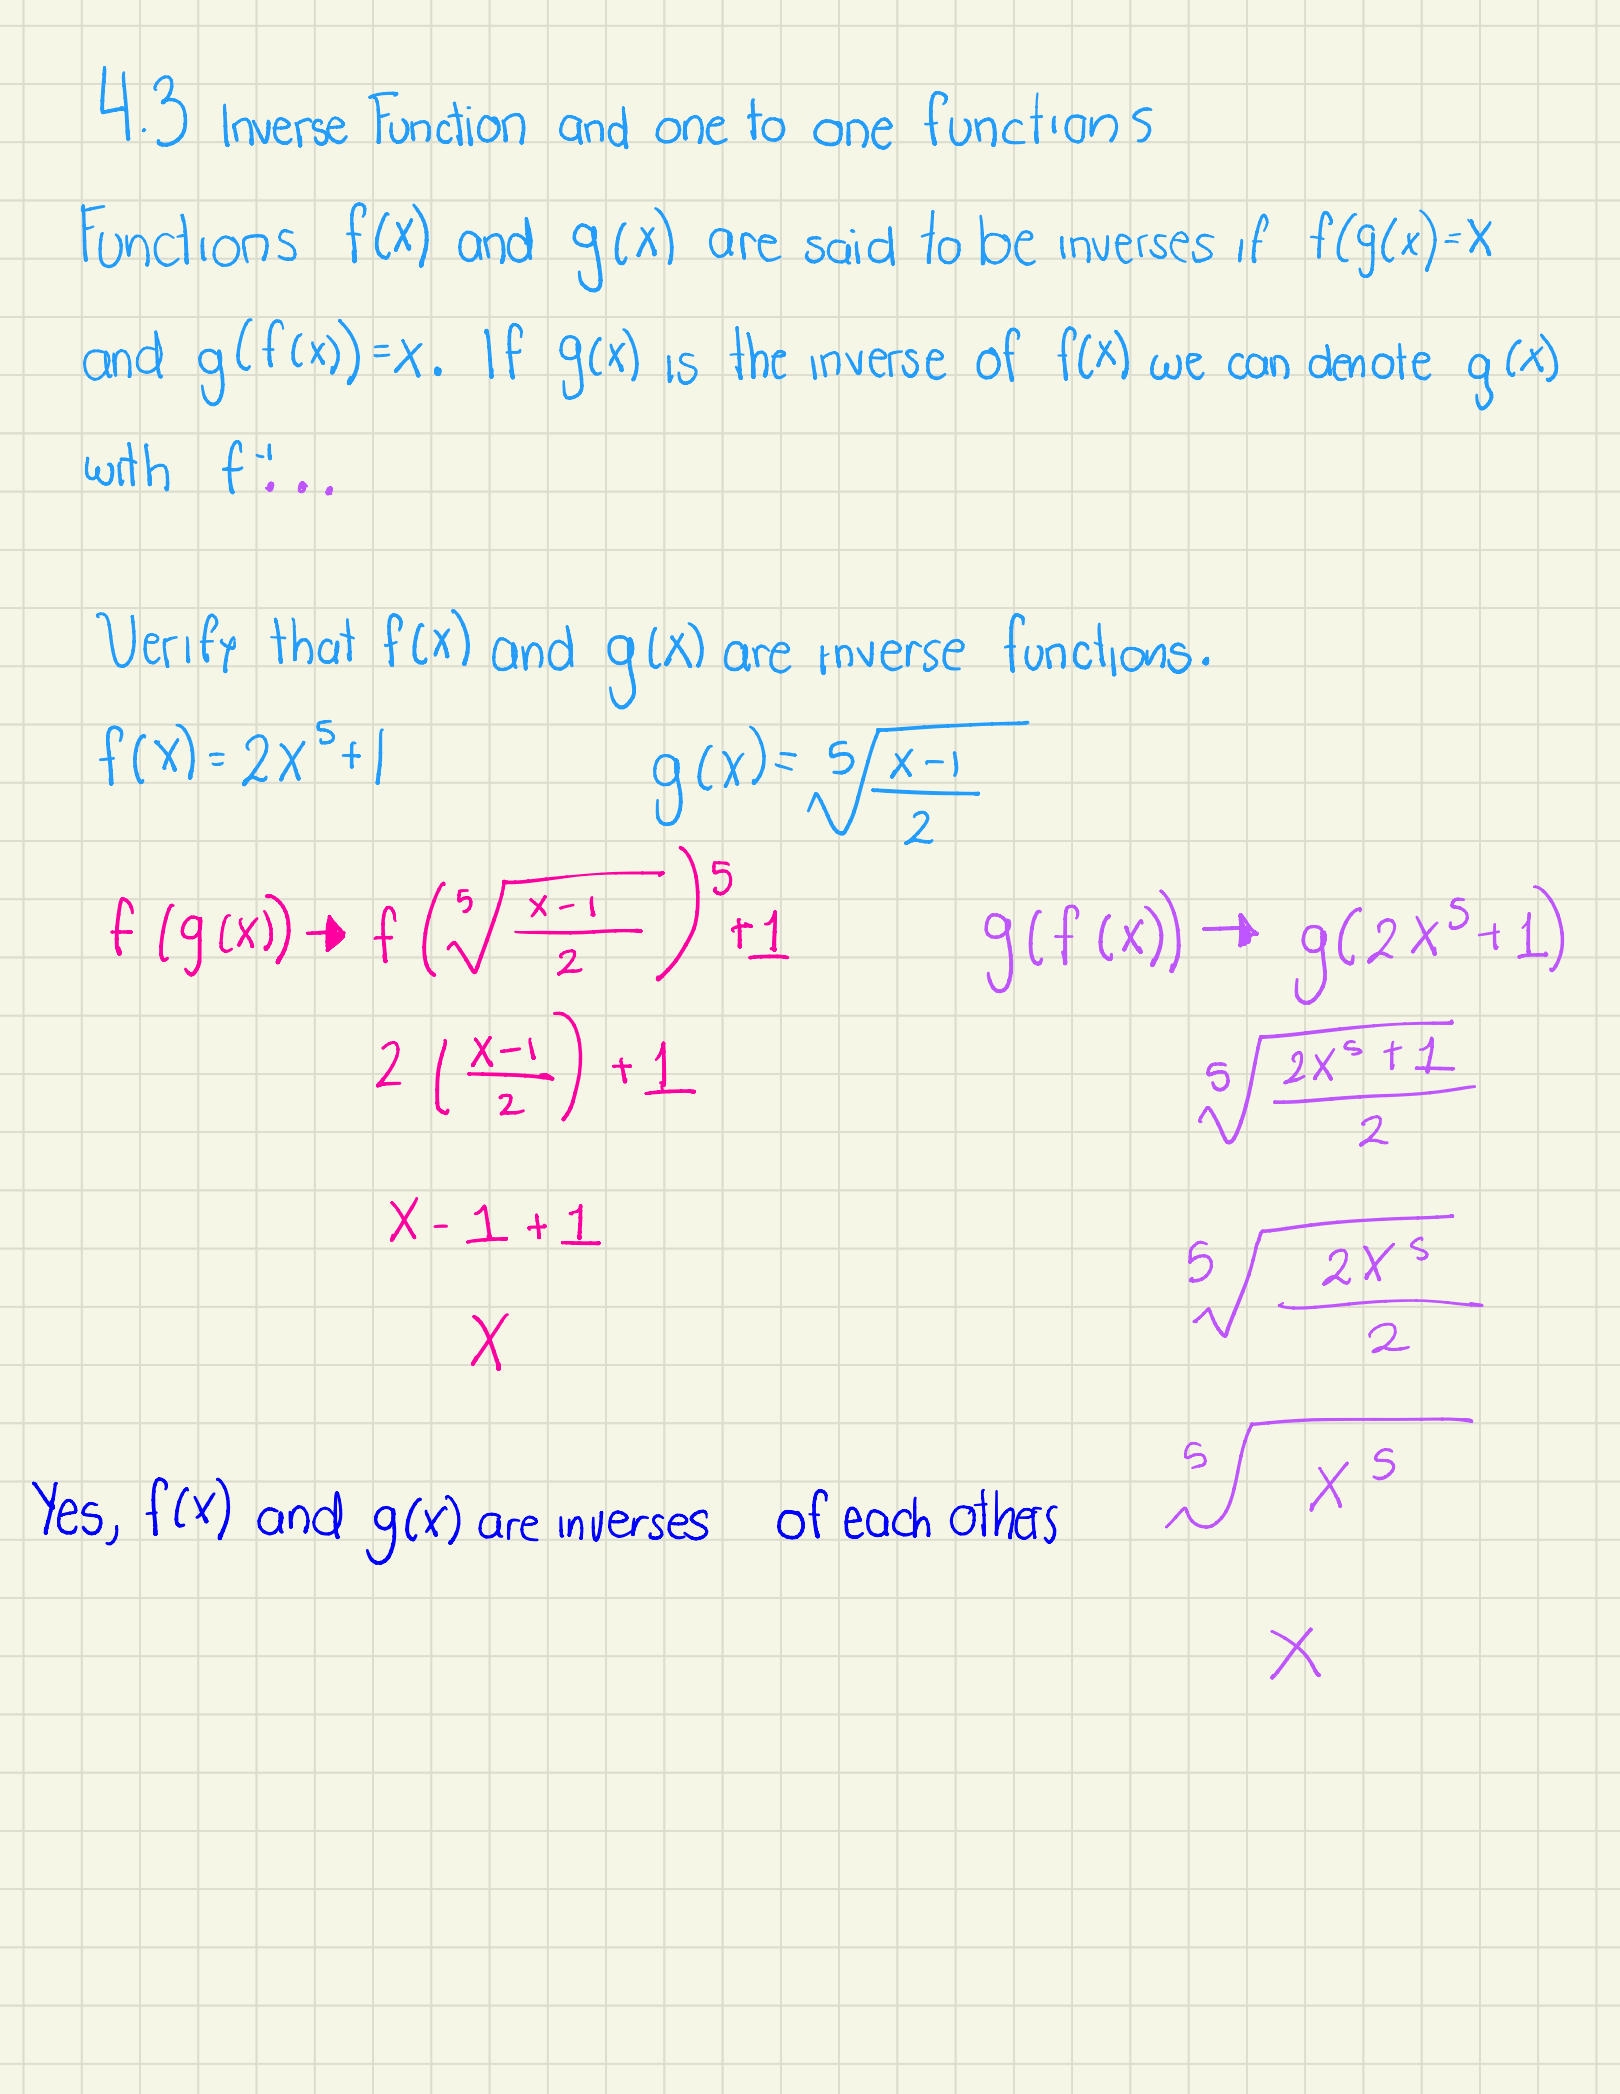 4.3 Inverse Function and one to one functions
Functions f(x) and g(x) are said to be inverses if f(g(x)=x
and g(f(x))=x. If g(x) is the inverse of f(x) we can denote g(x)
with f⁻¹...
Verify that f(x) and g(x) are inverse functions.
f(x) = 2x⁵+1
g(x) = ⁵√((x-1)/2)
f(g(x)) → f(⁵√((x-1)/2))⁵ + 1
2((x-1)/2) + 1
x - 1 + 1
x
g(f(x)) → g(2x⁵+1)
⁵√((2x⁵+1)/2)
⁵√(2x⁵/2)
⁵√(x⁵)
x
Yes, f(x) and g(x) are inverses of each others